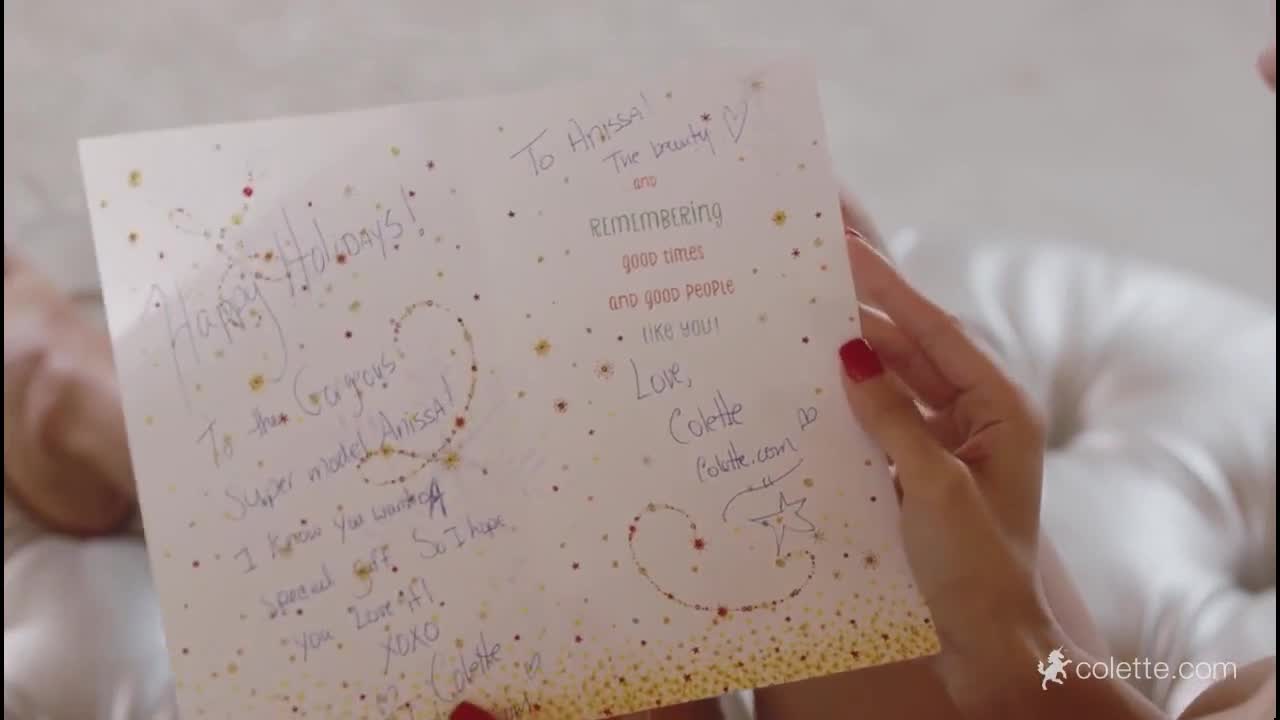 Happy Holidays!
To the Gorgeous
Super model Anissa!
I know you wanted A
special gift So I hope
you Love it!
XOXO
Colette
To Anissa!
The beauty
and
REMEMBERING
good times
and good people
like you!
Love,
Colette
Colette.com
colette.com